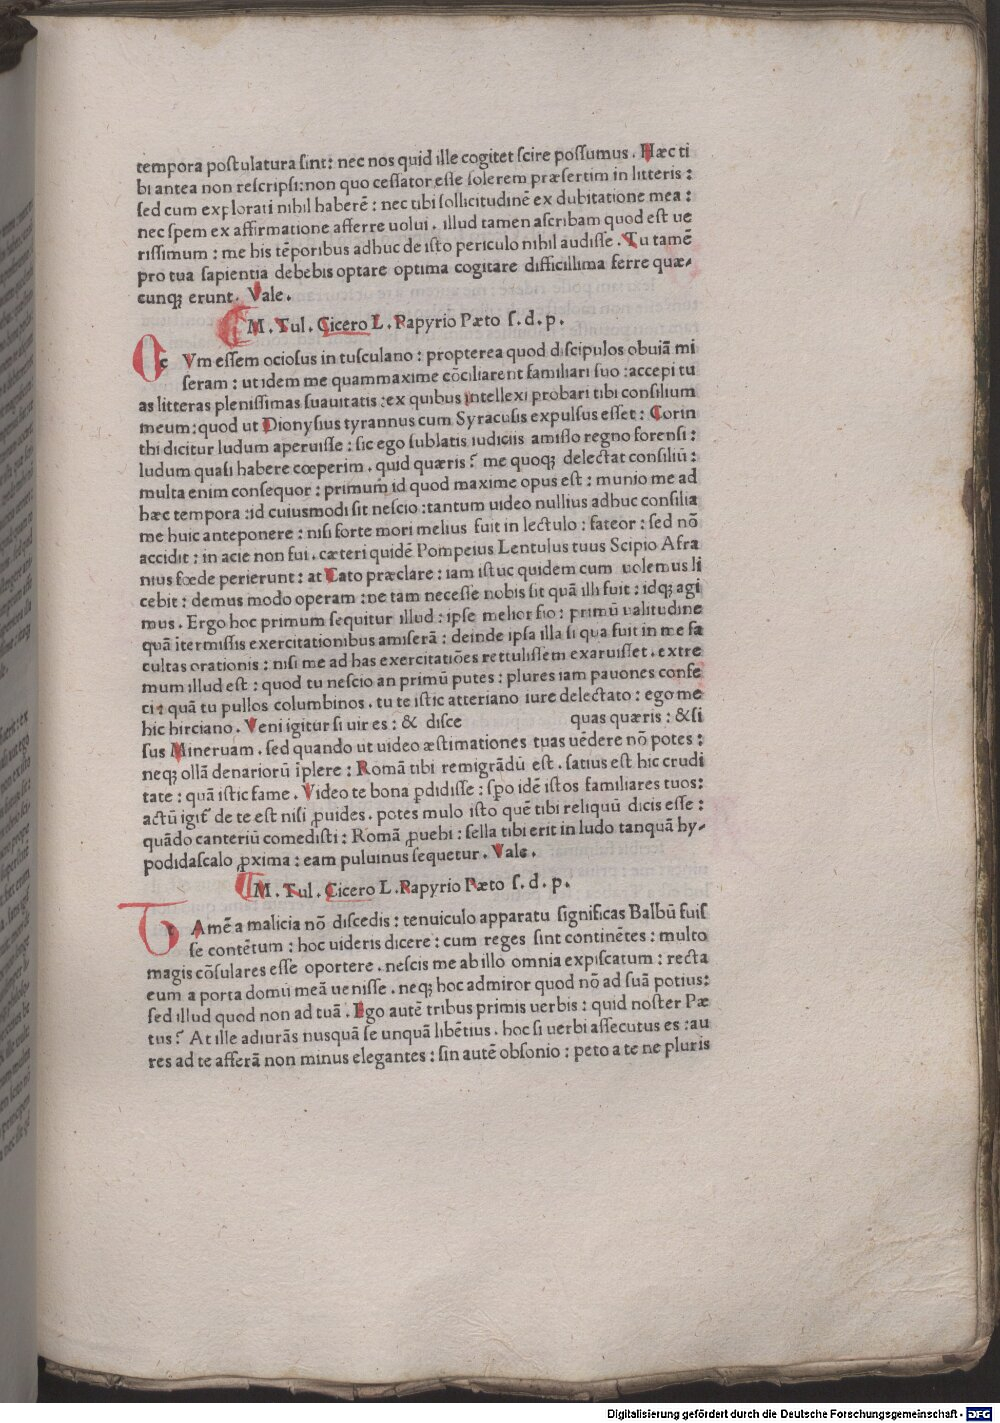 tempora postulatura sint: nec nos quid ille cogitet scire possumus. Hæc ti
bi antea non rescripsi: non quo cessator esse solerem præsertim in litteris:
sed cum explorati nihil haberē: nec tibi sollicitudinē ex dubitatione mea:
nec spem ex affirmatione afferre uolui. illud tamen ascribam quod est ue
rissimum: me his tēporibus adhuc de isto periculo nihil audisse. Tu tamē
pro tua sapientia debebis optare optima cogitare difficillima ferre quæ-
cunqȝ erunt. Vale.
M. Tul. Cicero L. Papyrio Pæto s. d. p.
c Vm essem ociosus in tusculano: propterea quod discipulos obuiā mi
seram: ut idem me quammaxime cōciliarent familiari suo: accepi tu
as litteras plenissimas suauitatis: ex quibus intellexi probari tibi consilium
meum: quod ut Dionysius tyrannus cum Syracusis expulsus esset: Corin
thi dicitur ludum aperuisse: sic ego sublatis iudiciis amisso regno forensi:
ludum quasi habere cœperim. quid quæris? me quoqȝ delectat consiliū:
multa enim consequor: primum id quod maxime opus est: munio me ad
hæc tempora: id cuiusmodi sit nescio: tantum uideo nullius adhuc consilia
me huic anteponere: nisi forte mori melius fuit in lectulo: fateor: sed nō
accidit: in acie non fui. cæteri quidē Pompeius Lentulus tuus Scipio Afra
nius fœde perierunt: at Cato præclare: iam istuc quidem cum uolemus li
cebit: demus modo operam: ne tam necesse nobis sit quā illi fuit: idqȝ agi
mus. Ergo hoc primum sequitur illud: ipse melior fio: primū ualitudine
quā itermissis exercitationibus amiserā: deinde ipsa illa si qua fuit in me fa
cultas orationis: nisi me ad has exercitatiōes rettulissem exaruisset. extre
mum illud est: quod tu nescio an primū putes: plures iam pauones confe
ci: quā tu pullos columbinos. tu te istic atteriano iure delectato: ego me
hic hirciano. Veni igitur si uir es: & disce quas quæris: & si
sus Mineruam. sed quando ut uideo æstimationes tuas uēdere nō potes:
neqȝ ollā denariorū īplere: Romā tibi remigrādū est. satius est hic crudi
tate: quā istic fame. Video te bona ꝑdidisse: spo idē istos familiares tuos:
actū igit᷑ de te est nisi ꝓuides. potes mulo isto quē tibi reliquū dicis esse:
quādo canteriū comedisti: Romā ꝓuehi: sella tibi erit in ludo tanquā hy-
podidascalo ꝓxima: eam puluinus sequetur. Vale.
M. Tul. Cicero L. Papyrio Pæto s. d. p.
t Amē a malicia nō discedis: tenuiculo apparatu significas Balbū fuis
se contētum: hoc uideris dicere: cum reges sint continētes: multo
magis cōsulares esse oportere. nescis me ab illo omnia expiscatum: recta
eum a porta domū meā uenisse. neqȝ hoc admiror quod nō ad suā potius:
sed illud quod non ad tuā. Ego autē tribus primis uerbis: quid noster Pæ
tus? At ille adiurās nusquā se unquā libētius. hoc si uerbi assecutus es: au
res ad te afferā non minus elegantes: sin autē obsonio: peto a te ne pluris
Digitalisierung gefördert durch die Deutsche Forschungsgemeinschaft - DFG